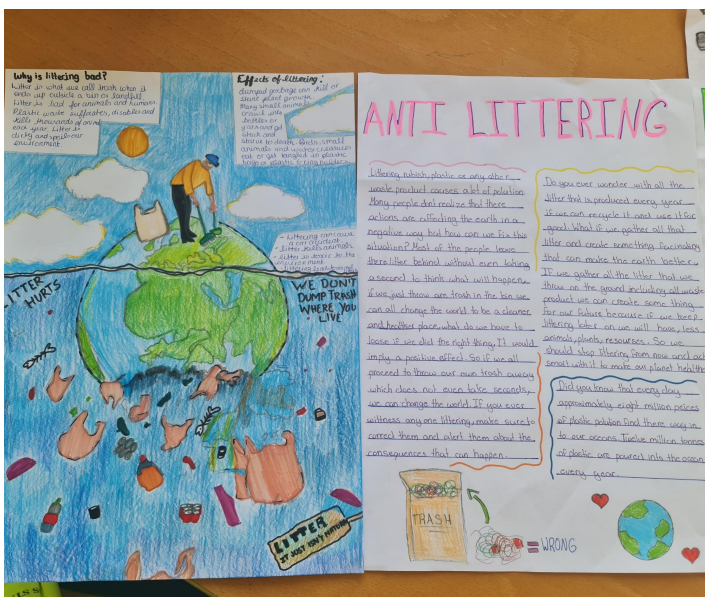 Why is littering bad?
Litter is what we call trash when it
ends up outside a bin or landfill.
Litter is bad for animals and humans.
Plastic waste suffocates, disables and
kills thousands of
each year. Litter is
dirty and spoils our
environment.
Effects of littering:
dumped garbage can kill or
stunt plant growth.
Many small animals
crawl into
bottles or
and get
stuck and
starve to death. Birds, small
animals and water creatures
eat or get tangled in plastic
bags or plastic
- Littering can cause
a car accident
- Litter kills animals
- Litter is toxic to the
LITTER
HURTS
WE DON'T
DUMP TRASH
WHERE YOU
LIVE
LITTER
IT JUST ISN'T
ANTI LITTERING
Littering rubbish, plastic or any other
waste product causes alot of polution
Many people dont realize that there
actions are affecting the earth in a
negative way but how can we fix this
situation? Most of the people leave
there litter behind without even taking
a second to think what will happen.
if we just throw are trash in the bin we
can all change the world to be a cleaner
and healthier place, what do we have to
loose if we did the right thing, It would
imply a positive effect. So if we all
proceed to throw our own trash away
which does not even take seconds,
we can change the world. If you ever
witness any one littering, make sure to
correct them and alert them about the
consequences that can happen.
Do you ever wonder with all the
litter that is produced every year
if we can recycle it and use it for
good. What if we gather all that
litter and create something fascinating
that can make the earth better.
If we gather all the litter that we
throw on the ground including all waste
product we can create some thing
for our future because if we keep
littering later on we will have, less
animals, plants, resourses. So we
should stop littering from now and act
smart with it to make our planet
Did you know that every day
approximately eight million peices
of plastic polution find there way in
to our oceans. Twelve million tonnes
of plastic are poured into the ocean
every year.
TRASH
= WRONG